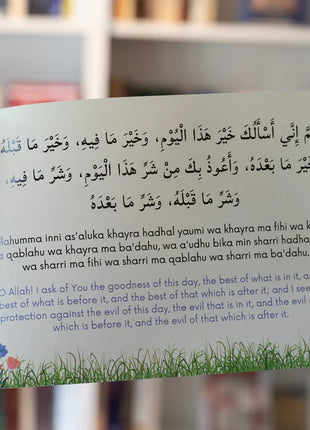 إِنِّي أَسْأَلُكَ خَيْرَ هَذَا الْيَوْمِ، وَخَيْرَ مَا فِيهِ، وَخَيْرَ مَا قَبْلَهُ
مَا بَعْدَهُ، وَأَعُوذُ بِكَ مِنْ شَرِّ هَذَا الْيَوْمِ، وَشَرِّ مَا فِيهِ،
وَشَرِّ مَا قَبْلَهُ، وَشَرِّ مَا بَعْدَهُ
llahumma inni as'aluka khayra hadhal yaumi wa khayra ma fihi wa k
a qablahu wa khayra ma ba'dahu, wa a'udhu bika min sharri hadha
wa sharri ma fihi wa sharri ma qablahu wa sharri ma ba'dahu.
O Allah! I ask of You the goodness of this day, the best of what is in it, a
best of what is before it, and the best of that which is after it; and I see
protection against the evil of this day, the evil that is in it, and the evil
which is before it, and the evil of that which is after it.